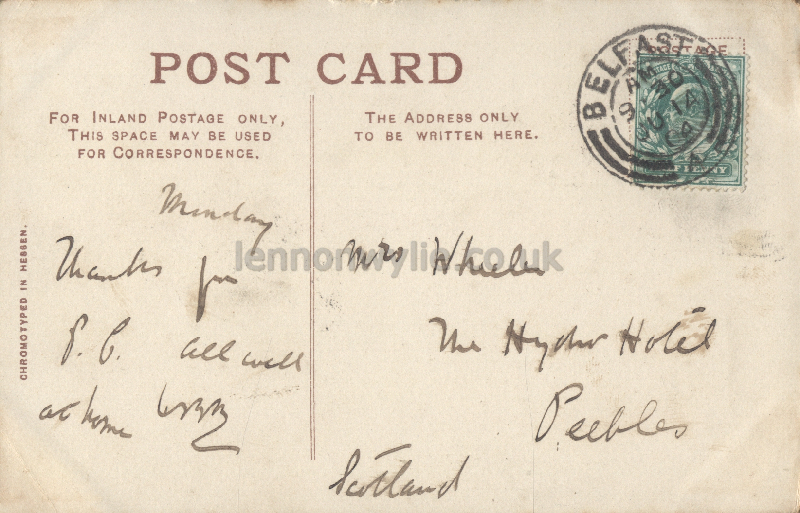 POST CARD
FOR INLAND POSTAGE ONLY,
THIS SPACE MAY BE USED
FOR CORRESPONDENCE.
THE ADDRESS ONLY
TO BE WRITTEN HERE.
POSTAGE
BELFAST
AM
9 30
JU 14
PENNY
CHROMOTYPED IN HESSEN.
Monday
Thanks for
P.C. all well
at home
Mrs Wheeler
The Hydro Hotel
Peebles
Scotland
lennonwylie.co.uk